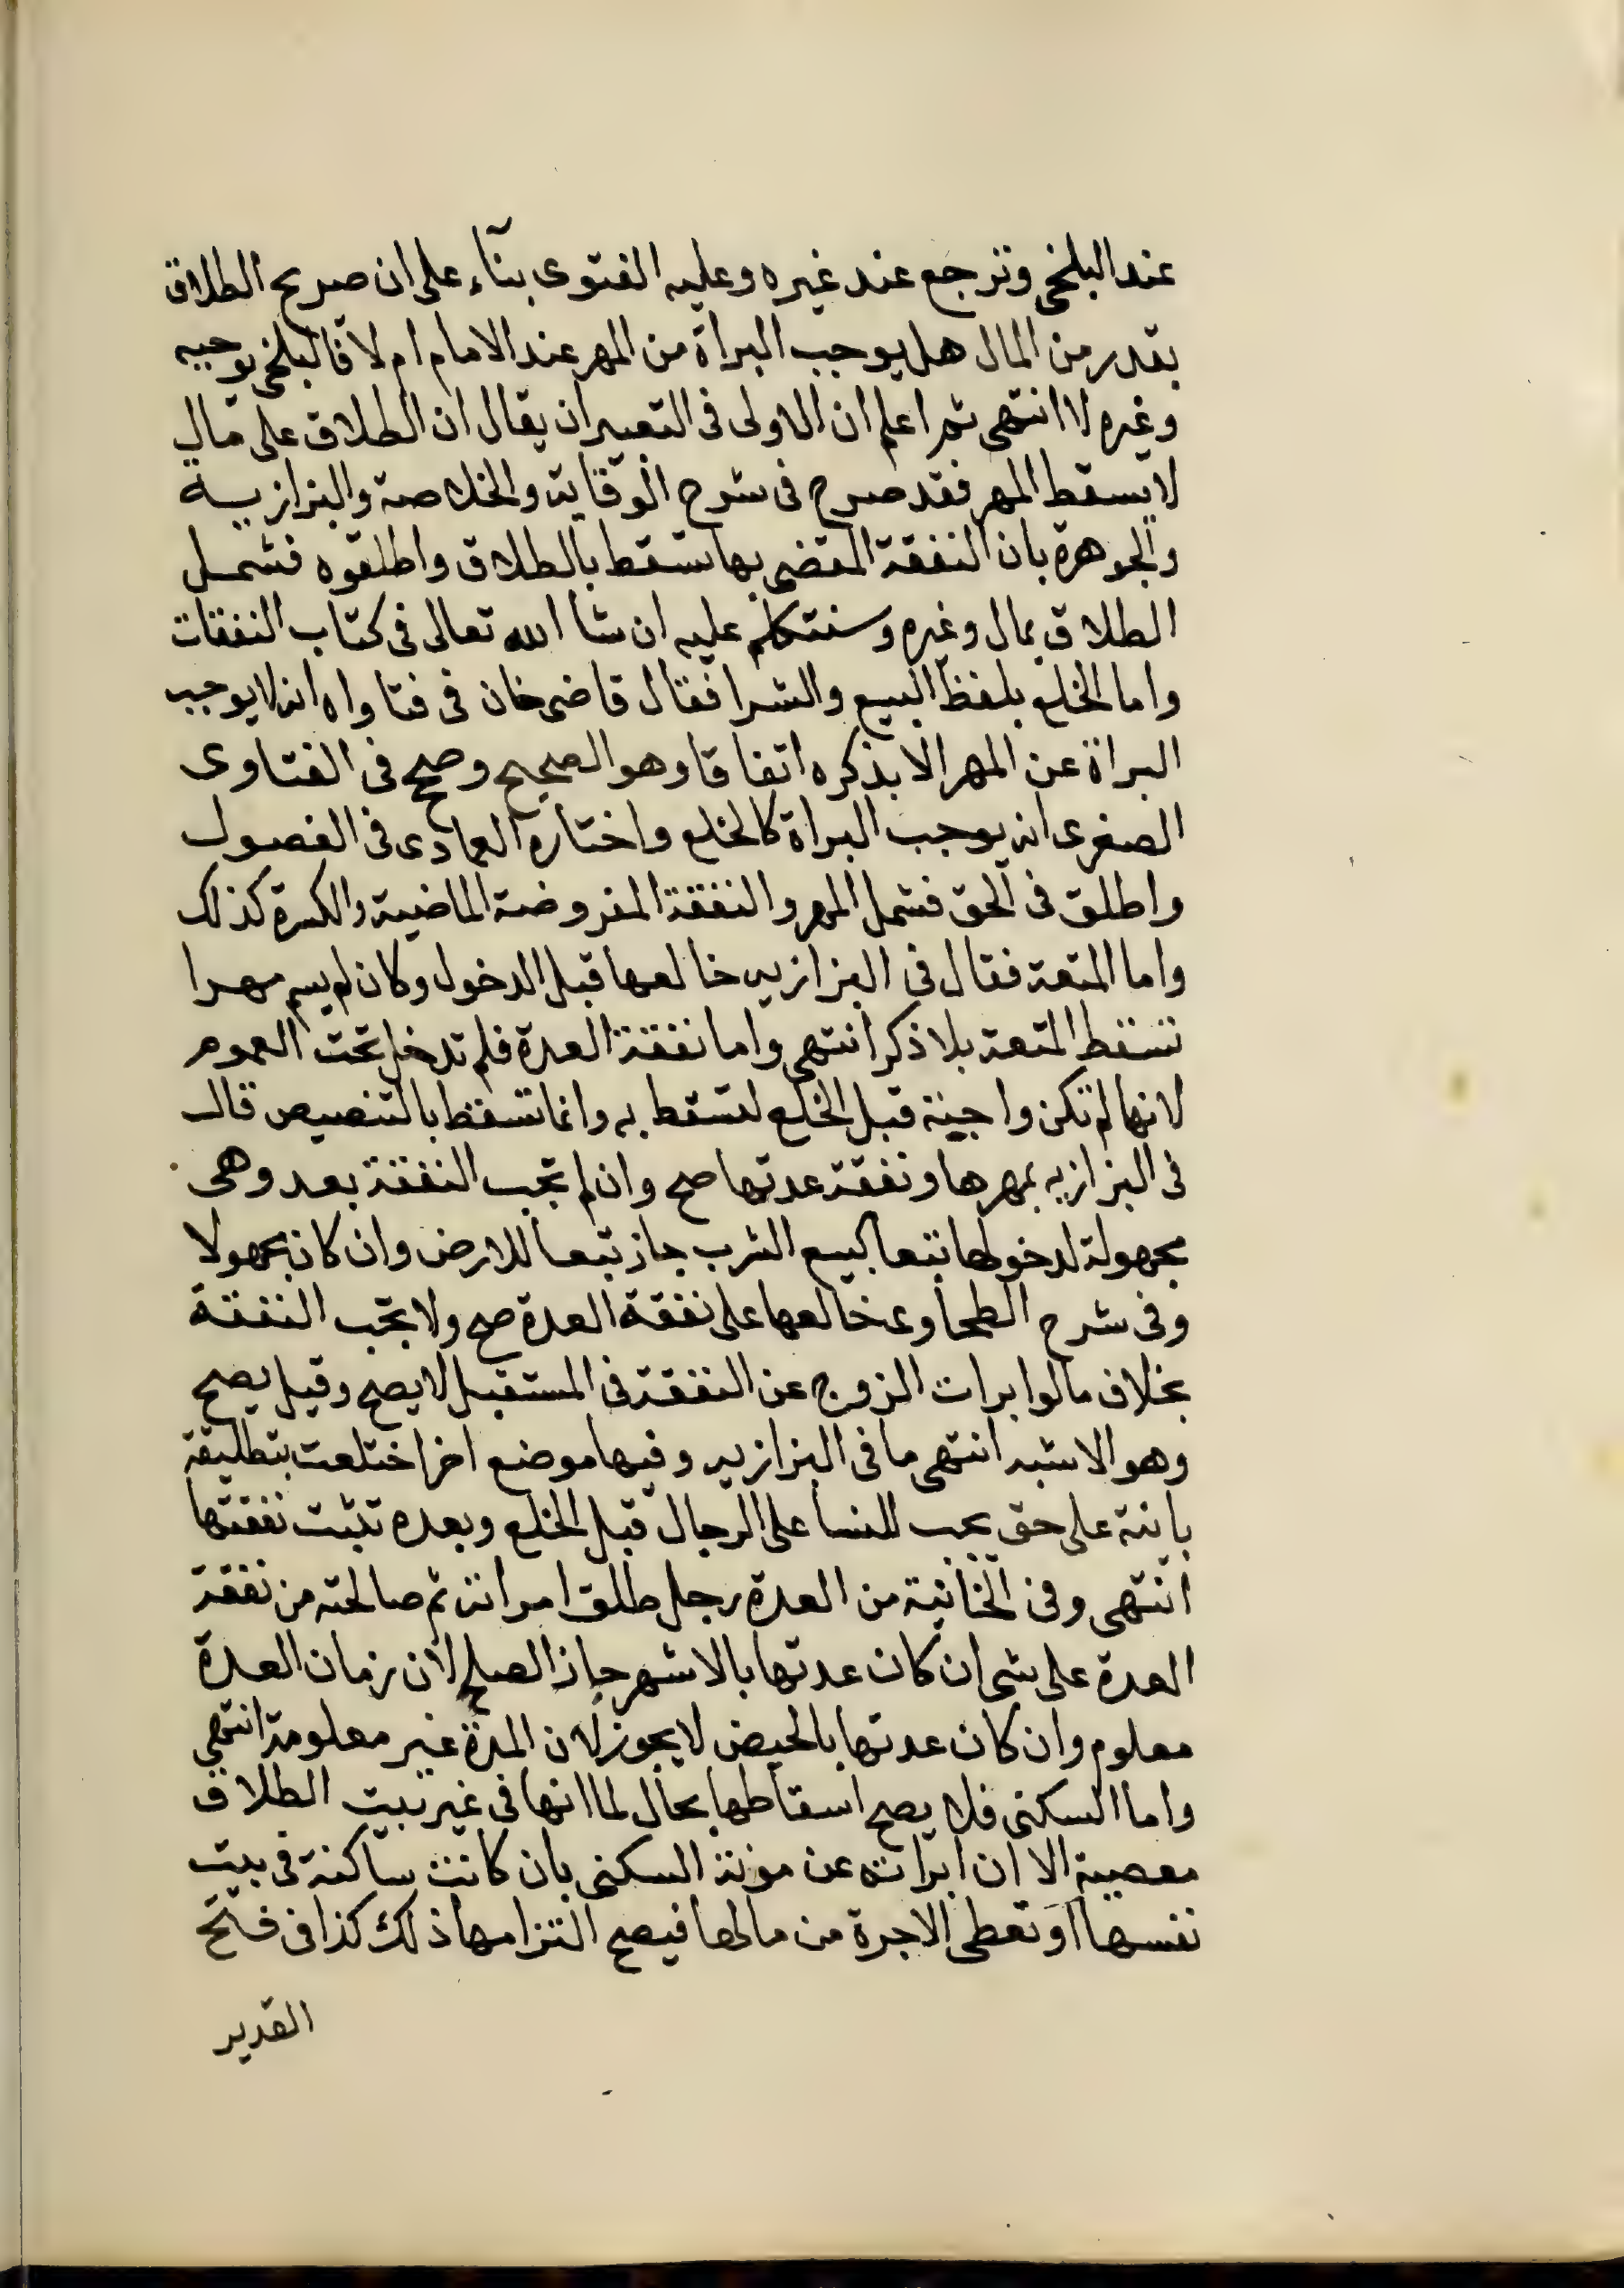 عند البلخى وترجع عند غيره وعليه الفتوى بنآء على ان صريح الطلاق
بقدر من المال هل يوجب البراة من المهر عند الامام ام لا فالبلخى يوجبه
وغيره لا انتهى ثم اعلم ان الاولى فى التعبير ان يقال ان الطلاق على مال
لا يسقط المهر فقد صرح فى شرح الوقاية والخلاصة والبزازية
والجوهرة بان النفقة المقضى بها تسقط بالطلاق واطلقوه فشمل
الطلاق بمال وغيره وسنتكلم عليه ان شا الله تعالى فى كتاب النفقات
واما الخلع بلفظ البيع والشرا فقال قاضى خان فى فتاواه انه لا يوجب
البراة عن المهر الا بذكره اتفاقا وهو الصحيح وصحح فى الفتاوى
الصغرى انه يوجب البراة كالخلع واختاره العمادى فى الفصول
واطلق فى الحق فشمل المهر والنفقة المفروضة الماضية والكسوة كذلك
واما المتعة فقال فى البزازيه خالعها قبل الدخول وكان لم يسم مهرا
تسقط المتعة بلا ذكر انتهى واما نفقة العدة فلم تدخل تحت العموم
لانها لم تكن واجبة قبل الخلع لتسقط به وانما تسقط بالتنصيص قال
فى البزازيه بمهرها ونفقة عدتها صح وان لم تجب النفقة بعد وهى
مجهولة لدخولها تبعا كبيع الشرب جاز تبعا للارض وان كان مجهولا
وفى شرح الطحاوى خالعها على نفقة العدة صح ولا تجب النفقة
بخلاف ما لو ابرات الزوج عن النفقة فى المستقبل لا يصح وقيل يصح
وهو الاشبه انتهى ما فى البزازيه وفيها موضع اخر اختلعت بتطليقة
باينة على حق يجب للنسا على الرجال قبل الخلع وبعده تثبت نفقتها
انتهى وفى الخانية من العدة رجل طلق امراته ثم صالحته من نفقة
العدة على شى ان كان عدتها بالاشهر جاز الصلح لان زمان العدة
معلوم وان كان عدتها بالحيض لا يجوز لان المدة غير معلومة انتهى
واما السكنى فلا يصح اسقاطها بحال لما انها فى غير بيت الطلاق
معصية الا ان ابراته عن مونة السكنى بان كانت ساكنة فى بيت
نفسها او تعطى الاجرة من مالها فيصح التزامها ذلك كذا فى فتح
القدير